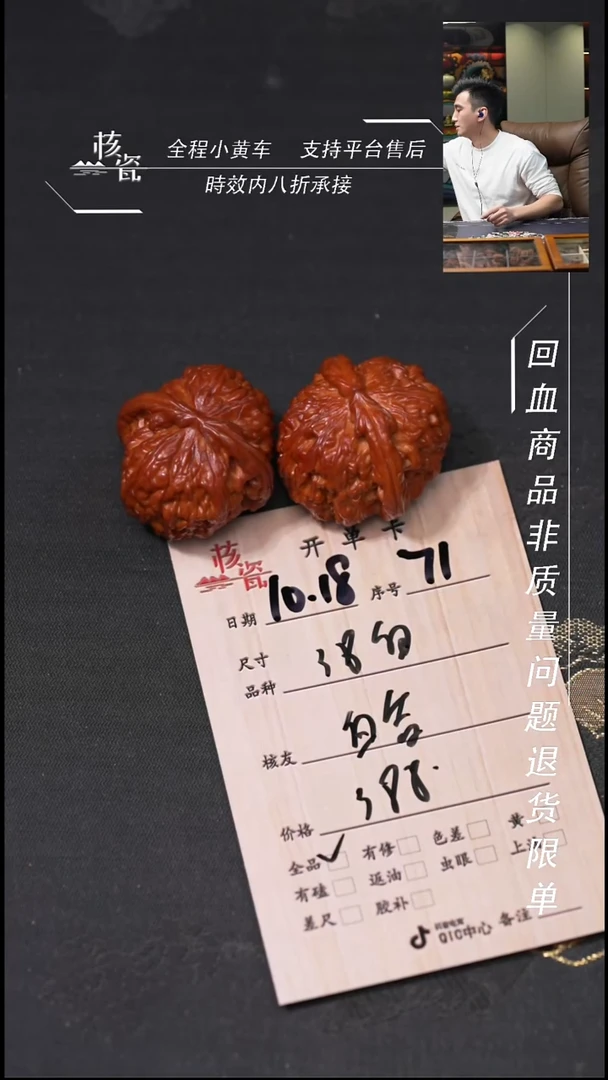 核瓷
全程小黄车 支持平台售后
時效内八折承接
回血商品非质量问题退货限单
核瓷
开单卡
日期 10.18 序号 71
尺寸
品种 38
核友
价格 398.
全品 有修 色差 黄
有磕 返油 虫眼 上
差尺 胶补
QIC中心 备注